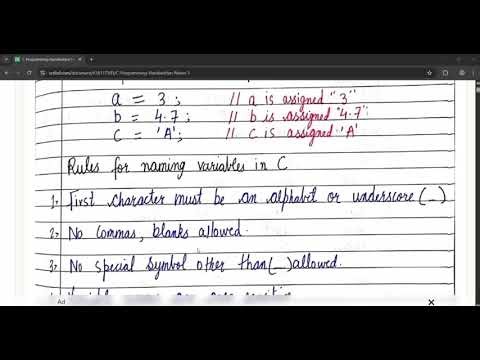 a = 3 ; // a is assigned "3"
b = 4.7 ; // b is assigned "4.7"
c = 'A' ; // c is assigned 'A'
Rules for naming variables in C
1. First character must be an alphabet or underscore (_)
2. No commas, blanks allowed.
3. No special symbol other than (_) allowed.
Ad